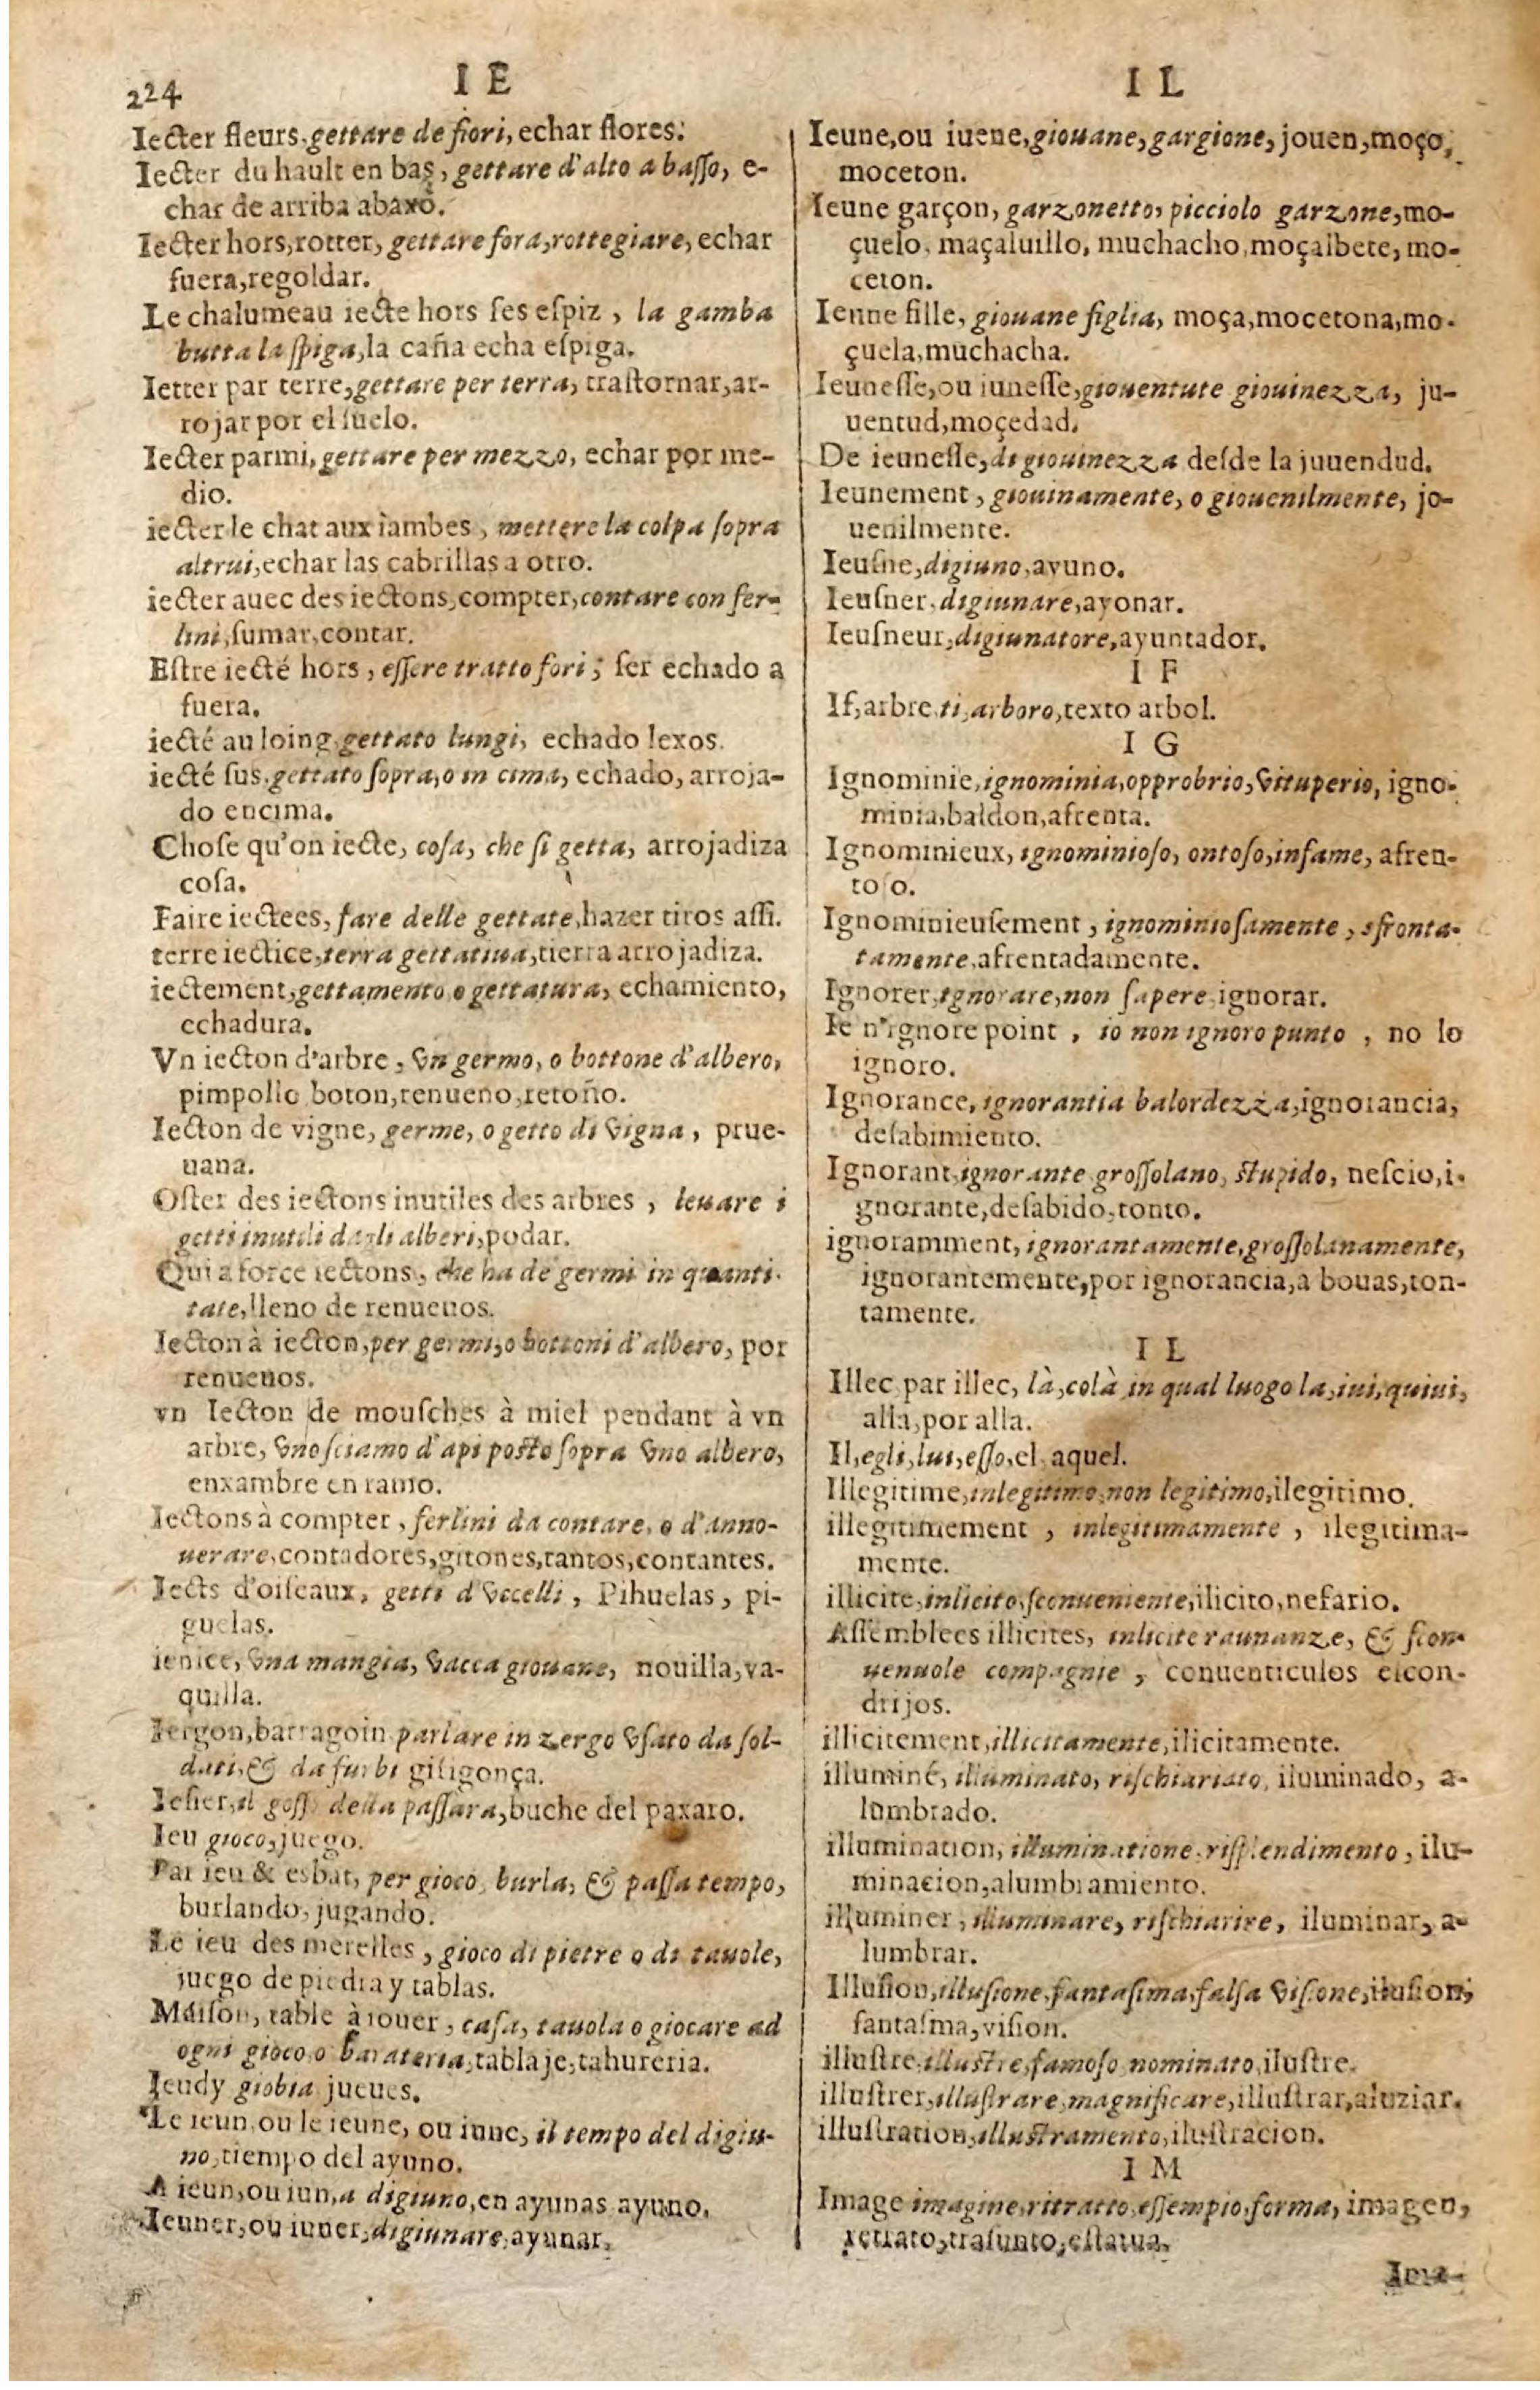 224
I E
Iecter fleurs, gettare de fiori, echar flores.
Iecter du hault en bas, gettare d'alto a basso, e-
char de arriba abaxo.
Iecter hors, rotter, gettare fora, rottegiare, echar
fuera, regoldar.
Le chalumeau iecte hors ses espiz, la gamba
butta la spiga, la caña echa espiga.
Ietter par terre, gettare per terra, trastornar, ar-
rojar por el suelo.
Iecter parmi, gettare per mezzo, echar por me-
dio.
iecter le chat aux iambes, mettere la colpa sopra
altrui, echar las cabrillas a otro.
iecter auec des iectons, compter, contare con fer-
lini, sumar, contar.
Estre iecté hors, essere tratto fori; ser echado a
fuera.
iecté au loing, gettato lungi, echado lexos.
iecté sus, gettato sopra, o in cima, echado, arroja-
do encima.
Chose qu'on iecte, cosa, che si getta, arrojadiza
cosa.
Faire iectees, fare delle gettate, hazer tiros assi.
terre iectice, terra gettatiua, tierra arrojadiza.
iectement, gettamento o gettatura, echamiento,
echadura.
Vn iecton d'arbre, vn germo, o bottone d'albero,
pimpollo boton, renueno, retoño.
Iecton de vigne, germe, o getto di vigna, prue-
uana.
Oster des iectons inutiles des arbres, leuare i
getti inutili dagli alberi, podar.
Qui a force iectons, che ha de germi in quanti-
tate, lleno de renueuos.
Iecton à iecton, per germi, o bottoni d'albero, por
renueuos.
vn Iecton de mousches à miel pendant à vn
arbre, vno sciamo d'api posto sopra vno albero,
enxambre en ramo.
Iectons à compter, ferlini da contare, o d'anno-
uerare, contadores, gitones, tantos, contantes.
Iects d'oiseaux, getti d'vccelli, Pihuelas, pi-
guelas.
ienice, vna mangia, vacca giouane, nouilla, va-
quilla.
Iergon, barragoin parlare in zergo vsato da sol-
dati, & da furbi gisigonça.
Iesier, il gosso della passara, buche del paxaro.
Ieu gioco, juego.
Par ieu & esbat, per gioco, burla, & passa tempo,
burlando, jugando.
Le ieu des merelles, gioco di pietre o di tauole,
juego de piedra y tablas.
Maison, table à iouer, casa, tauola o giocare ad
ogni gioco, o barateria, tablaje, tahureria.
Ieudy giobia jueues.
Le ieun, ou le ieune, ou iune, il tempo del digiu-
no, tiempo del ayuno.
A ieun, ou iun, a digiuno, en ayunas ayuno.
Ieuner, ou iuner, digiunare, ayunar.
I L
Ieune, ou iuene, giouane, gargione, jouen, moço,
moceton.
Ieune garçon, garzonetto, picciolo garzone, mo-
çuelo, maçaluillo, muchacho, moçalbete, mo-
ceton.
Ieune fille, giouane figlia, moça, mocetona, mo-
çuela, muchacha.
Ieunesse, ou iunesse, giouentute giouinezza, ju-
uentud, moçedad.
De ieunesse, di giouinezza desde la juuendud.
Ieunement, giouinamente, o giouenilmente, jo-
uenilmente.
Ieusne, digiuno, ayuno.
Ieusner, digiunare, ayonar.
Ieusneur, digiunatore, ayuntador.
I F
If, arbre, ti, arboro, texto arbol.
I G
Ignominie, ignominia, opprobrio, vituperio, igno-
minia, baldon, afrenta.
Ignominieux, ignominioso, ontoso, infame, afren-
toso.
Ignominieusement, ignominiosamente, sfronta-
tamente, afrentadamente.
Ignorer, ignorare, non sapere, ignorar.
Ie n'ignore point, io non ignoro punto, no lo
ignoro.
Ignorance, ignorantia balordezza, ignorancia,
desabimiento.
Ignorant, ignorante grossolano, stupido, nescio, i-
gnorante, desabido, tonto.
ignoramment, ignorantamente, grossolanamente,
ignorantemente, por ignorancia, a bouas, ton-
tamente.
I L
Illec, par illec, là, colà in qual luogo la, iui, quiui,
alla, por alla.
Il, egli, lui, esso, el, aquel.
Illegitime, inlegitimo, non legitimo, ilegitimo.
illegitimement, inlegitimamente, ilegitima-
mente.
illicite, inlicito, sconueniente, ilicito, nefario.
Assemblees illicites, inlicite raunanze, & scon-
ueneuole compagnie, conuenticulos escon-
drijos.
illicitement, illicitamente, ilicitamente.
illuminé, illuminato, rischiariato, iluminado, a-
lumbrado.
illumination, illuminatione, risplendimento, ilu-
minacion, alumbramiento.
illuminer, illuminare, rischiarire, iluminar, a-
lumbrar.
Illusion, illusione, fantasima, falsa visione, ilusion,
fantasma, vision.
illustre, illustre, famoso nominato, ilustre.
illustrer, illustrare, magnificare, illustrar, aluziar.
illustration, illustramento, ilustracion.
I M
Image imagine, ritratto, essempio, forma, imagen,
retrato, trasunto, estatua.
Ima-